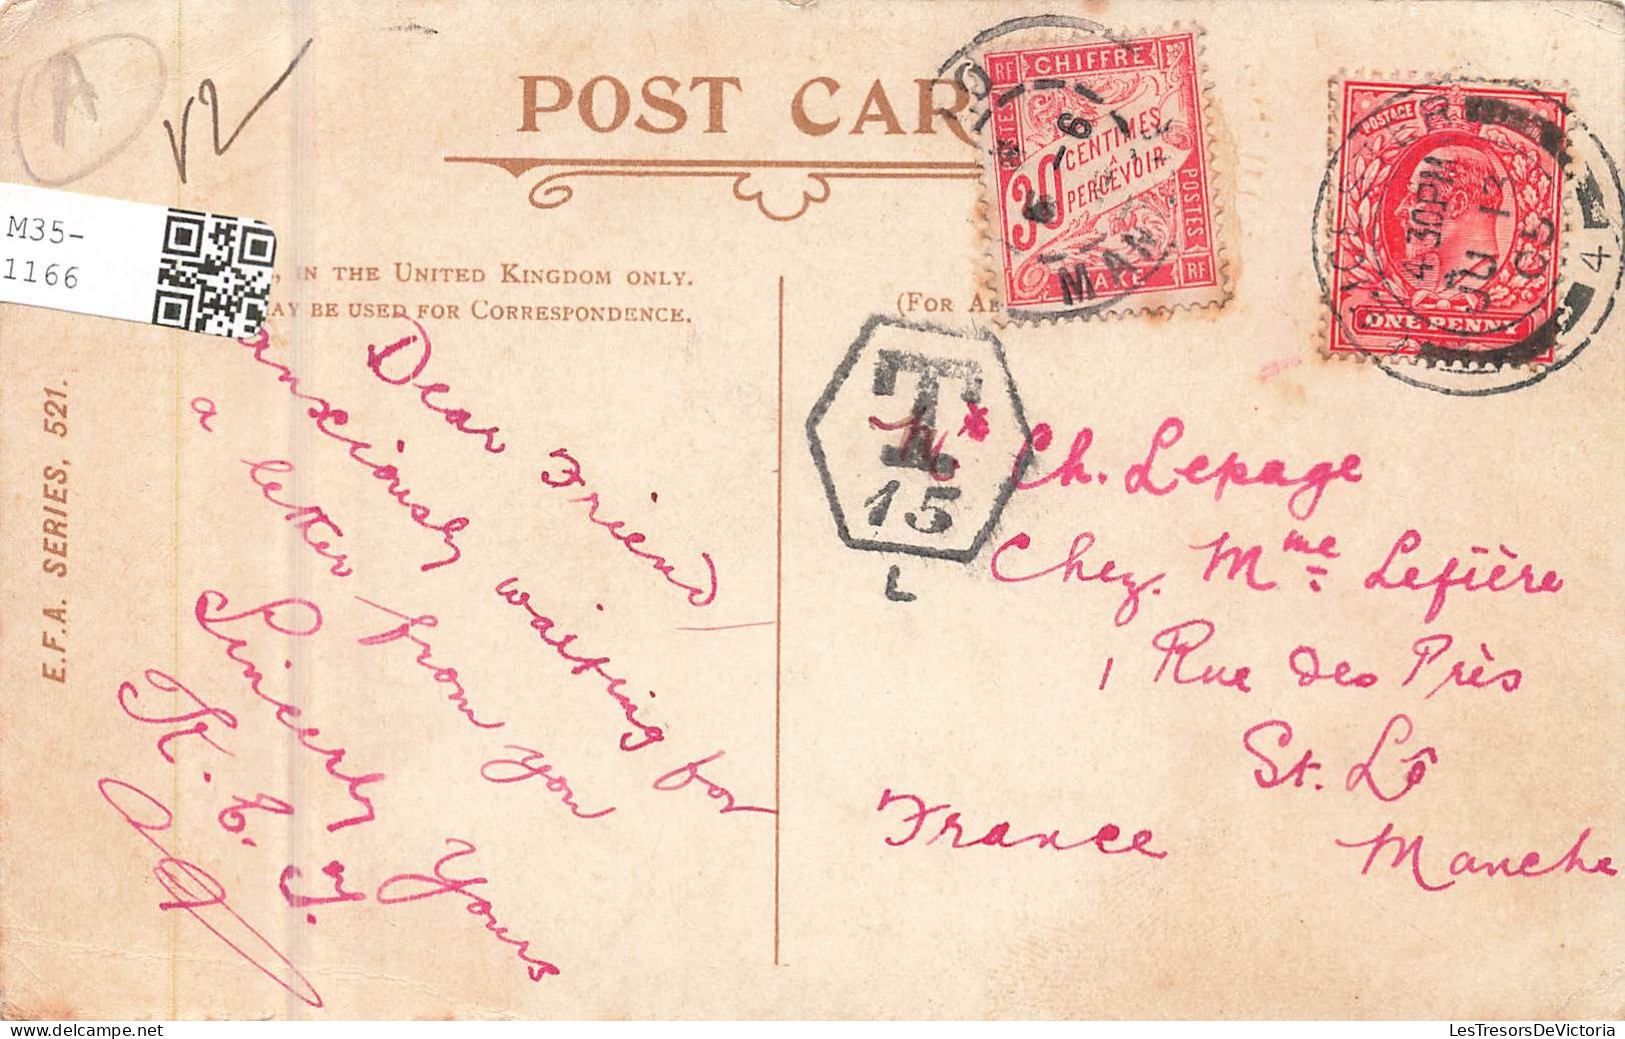 A
M35-
1166
POST CAR
IN THE UNITED KINGDOM ONLY.
AY BE USED FOR CORRESPONDENCE.
(FOR A
E.F.A. SERIES, 521.
Dear Friend
anxiously waiting for
a letter from you
Sincerely Yours
K. E. J.
RF CHIFFRE
30 CENTIMES
A
PERCEVOIR
POSTES
TAXE RF
MAN
POSTAGE
ONE PENNY
4 30PM
JU 13
05
4
T
15
L
Ch. Lepage
Chez. Mme Lefière
1 Rue des Près
St. Lô
Manche
France
LesTresorsDeVictoria